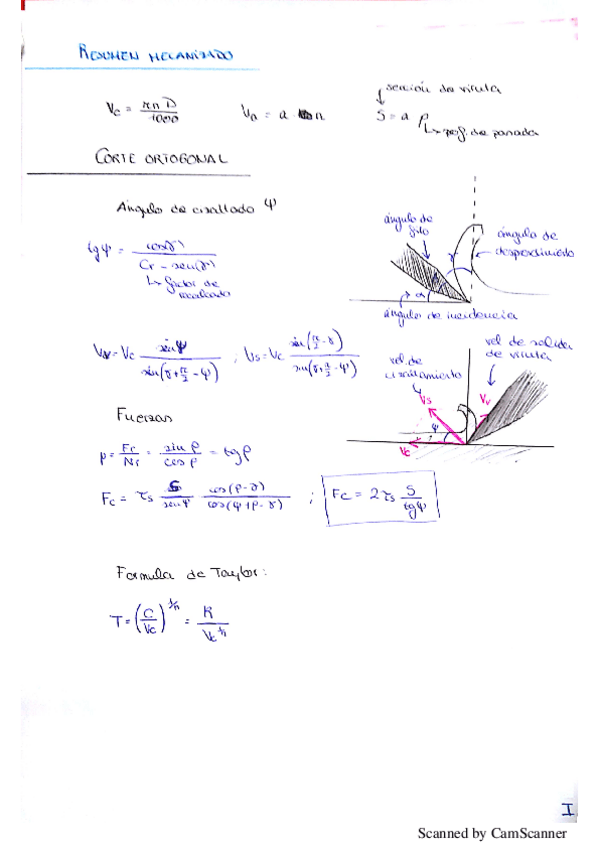 RESUMEN MECANIZADO
Vc = πnD/1000    Va = a n    S = a p
sección de viruta
prof. de pasada
CORTE ORTOGONAL
Ángulo de cizallado Ψ
tgΨ = cos(γ)/(Cr - sen(γ))
factor de recalcado
ángulo de filo
ángulo de desprendimiento
γ
α
ángulo de incidencia
Vv = Vc sinΨ/sin(γ+π/2-Ψ) ; Vs = Vc sin(π/2-γ)/sin(γ+π/2-Ψ)
vel de cizallamiento
vel de salida de viruta
Vs
Vv
Ψ
Vc
Fuerzas
= sin ρ/cos ρ = tgρ
Fc = τs S/senΨ cos(ρ-γ)/cos(Ψ+ρ-γ) ; Fc = 2τs S/tgΨ
Formula de Taylor:
T = (C/Vc)^1/n = K/Vc^1/n
I
Scanned by CamScanner